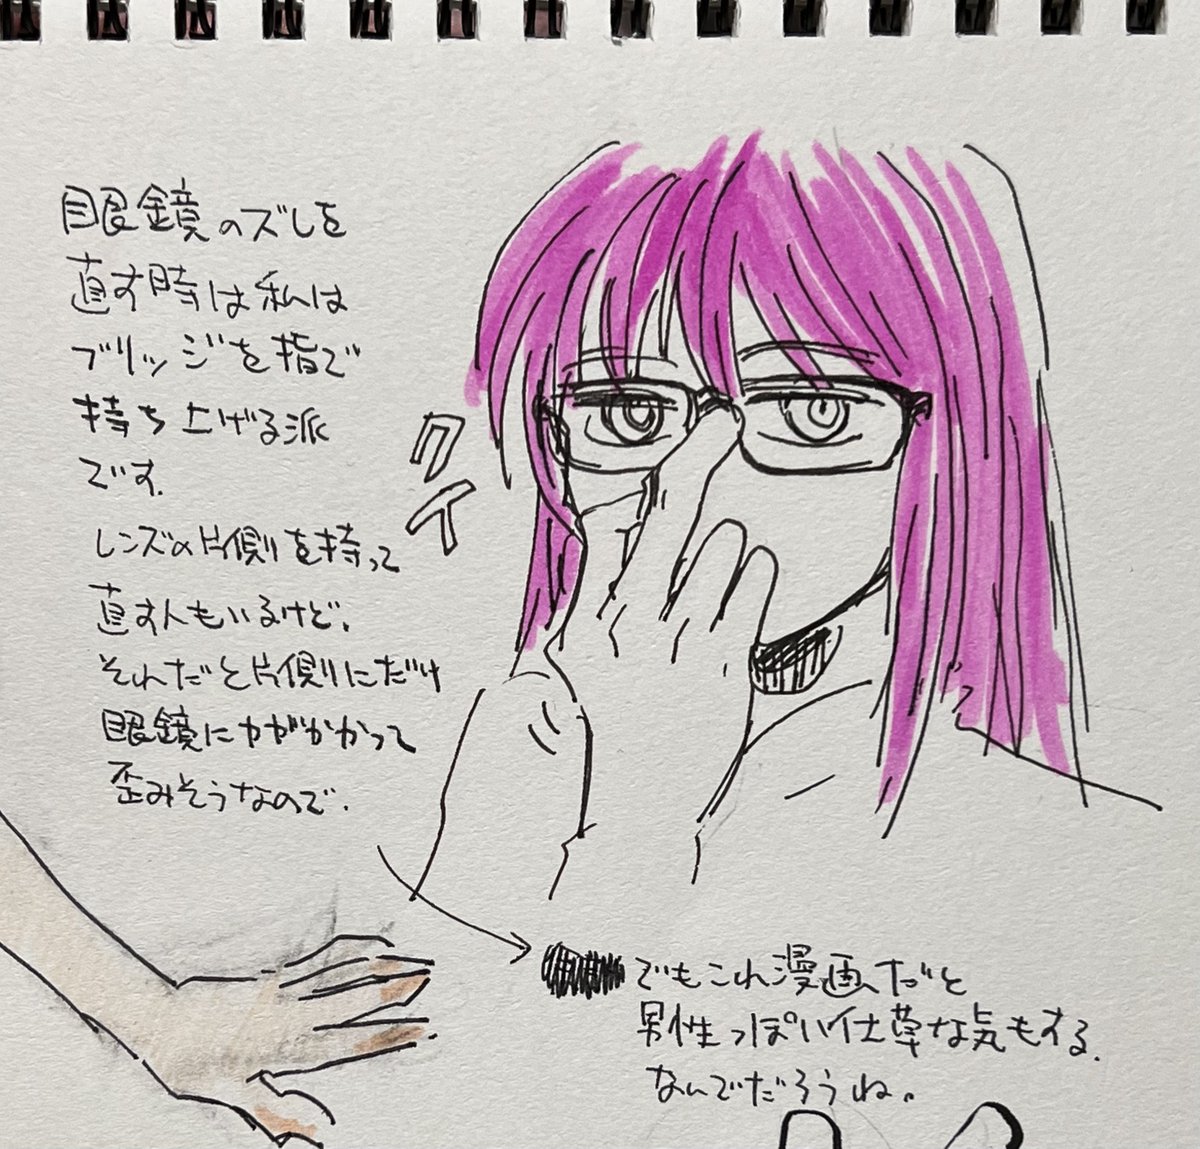 眼鏡のズレを
直す時は私は
ブリッジを指で
持ち上げる派
です.
レンズの片側を持って
直す人もいるけど.
それだと片側にだけ
眼鏡にカがかかって
歪みそうなので.
クイ
でもこれ漫画だと
男性っぽい仕草な気もする.
なんでだろうね。